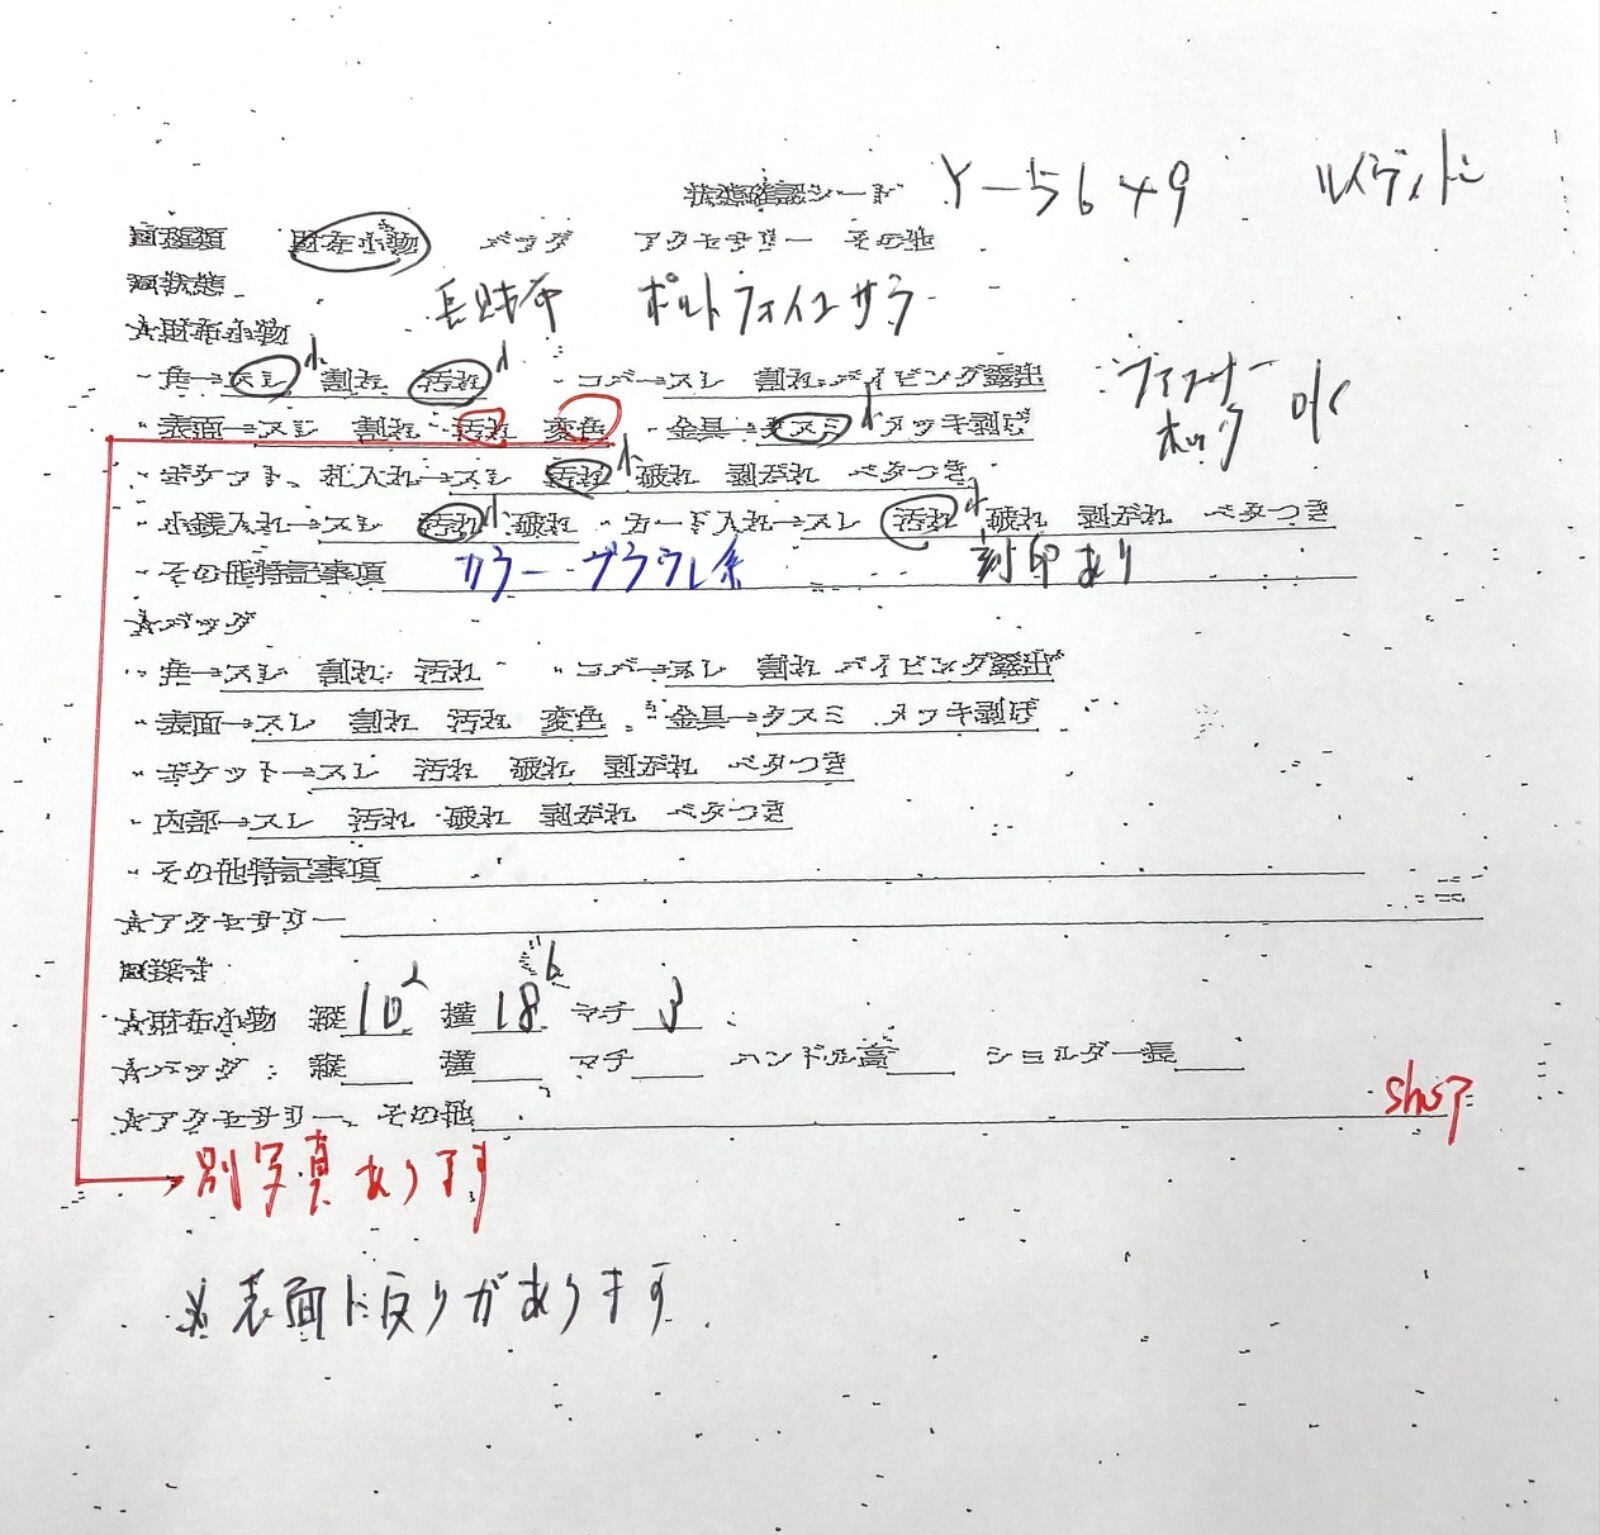 状態確認シート Y-5649 ルイヴィトン
■種類 財布小物 バッグ アクセサリー その他
■状態
長財布 ポルトフォイユサラ
☆財布小物
・角→スレ小 割れ 汚れ小 ・コバ→スレ 割れ パイピング露出
ファスナー
ホック OK
・表面→スレ 割れ 汚れ 変色 ・金具→クスミ小 メッキ剥げ
・ポケット、札入れ→スレ 汚れ小 破れ 剥がれ ベタつき
・小銭入れ→スレ 汚れ小 破れ ・カード入れ→スレ 汚れ小 破れ 剥がれ ベタつき
・その他特記事項 カラー ブラウン系 刻印あり
☆バッグ
・角→スレ 割れ 汚れ ・コバ→スレ 割れ パイピング露出
・表面→スレ 割れ 汚れ 変色 ・金具→クスミ メッキ剥げ
・ポケット→スレ 汚れ 破れ 剥がれ ベタつき
・内部→スレ 汚れ 破れ 剥がれ ベタつき
・その他特記事項
☆アクセサリー
■採寸
☆財布小物 縦 10 横 18 6 マチ 3
☆バッグ 縦 横 マチ ハンドル高 ショルダー長
☆アクセサリー、その他
shop
別写真あります
※表面に反りがあります